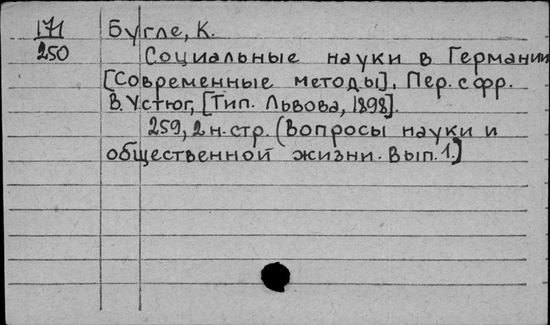 171 Бугле, К.
250 Социальные науки в Германии
[Современные методы]. Пер. с фр.
В. Устюг, [Тип. Львова, 1898].
259, 2 н. стр. (Вопросы науки и
общественной жизни. Вып. 1.)